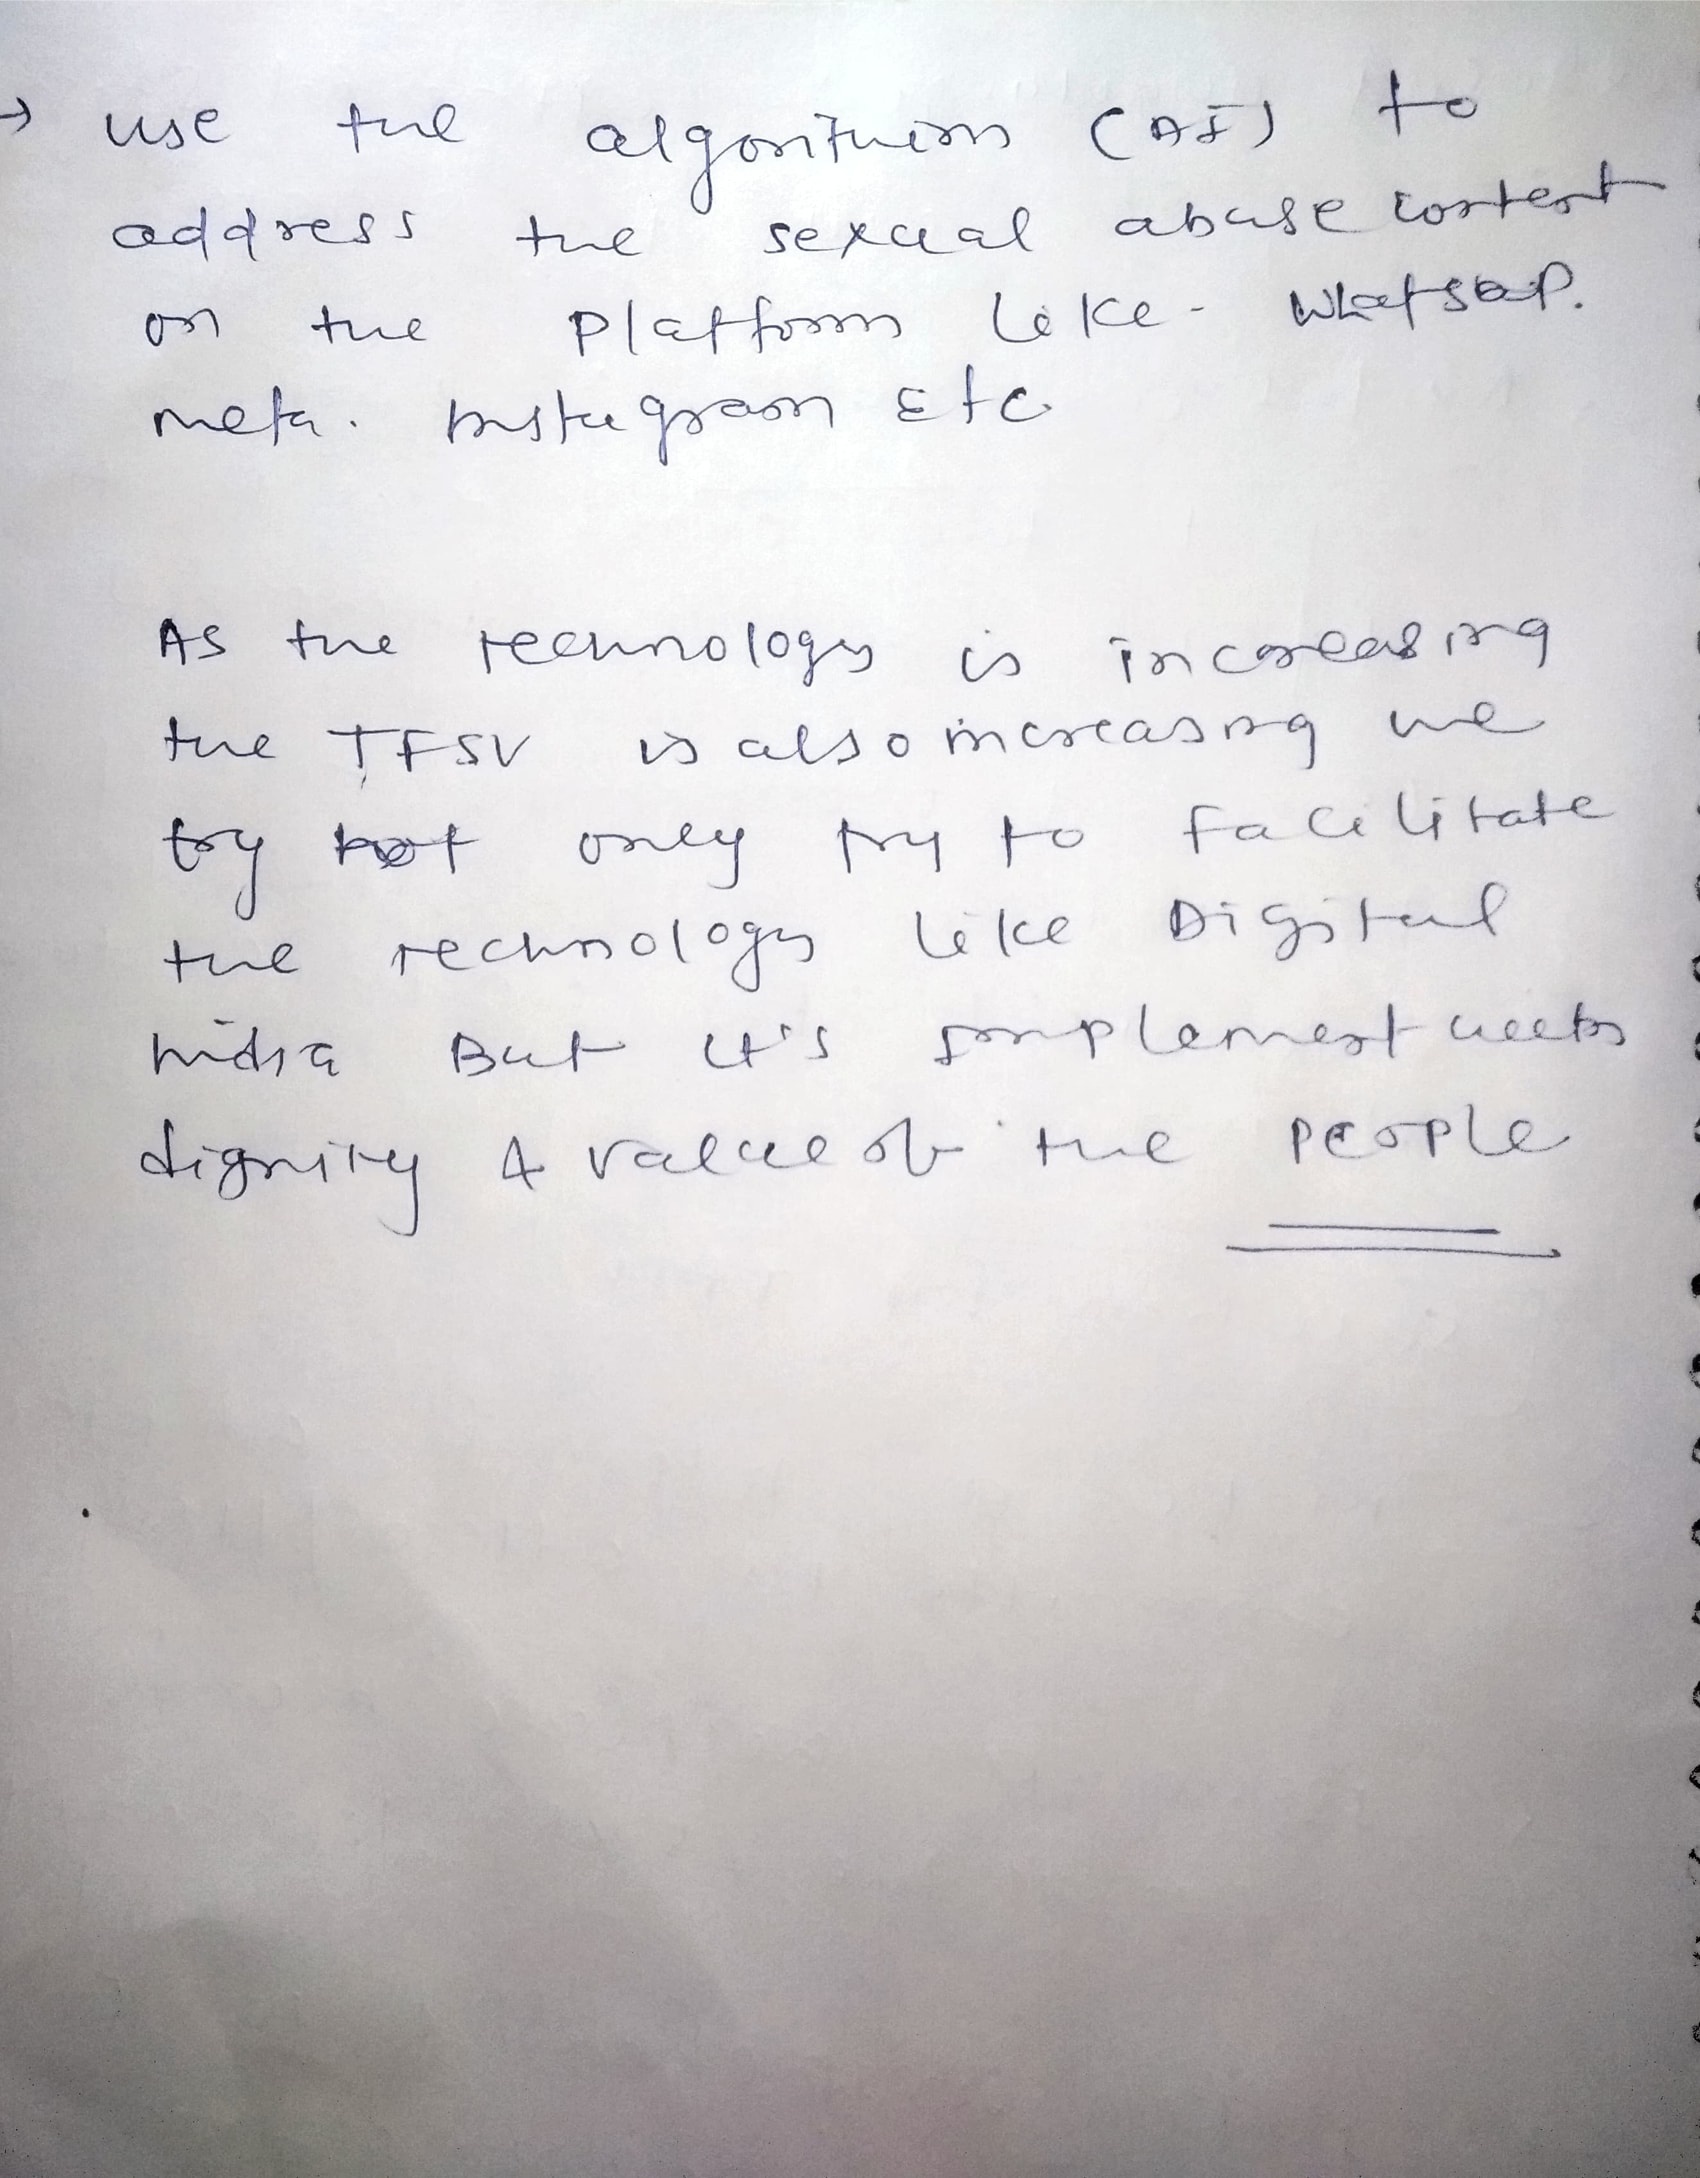 → use the algorithm (AI) to
address the sexual abuse content
on the platform like - Whatsap.
meta. Instagram Etc
As the technology is increasing
the TFSV is also increasing we
try not only try to facilitate
the technology like Digital
India But it's implement with
dignity & value of the people